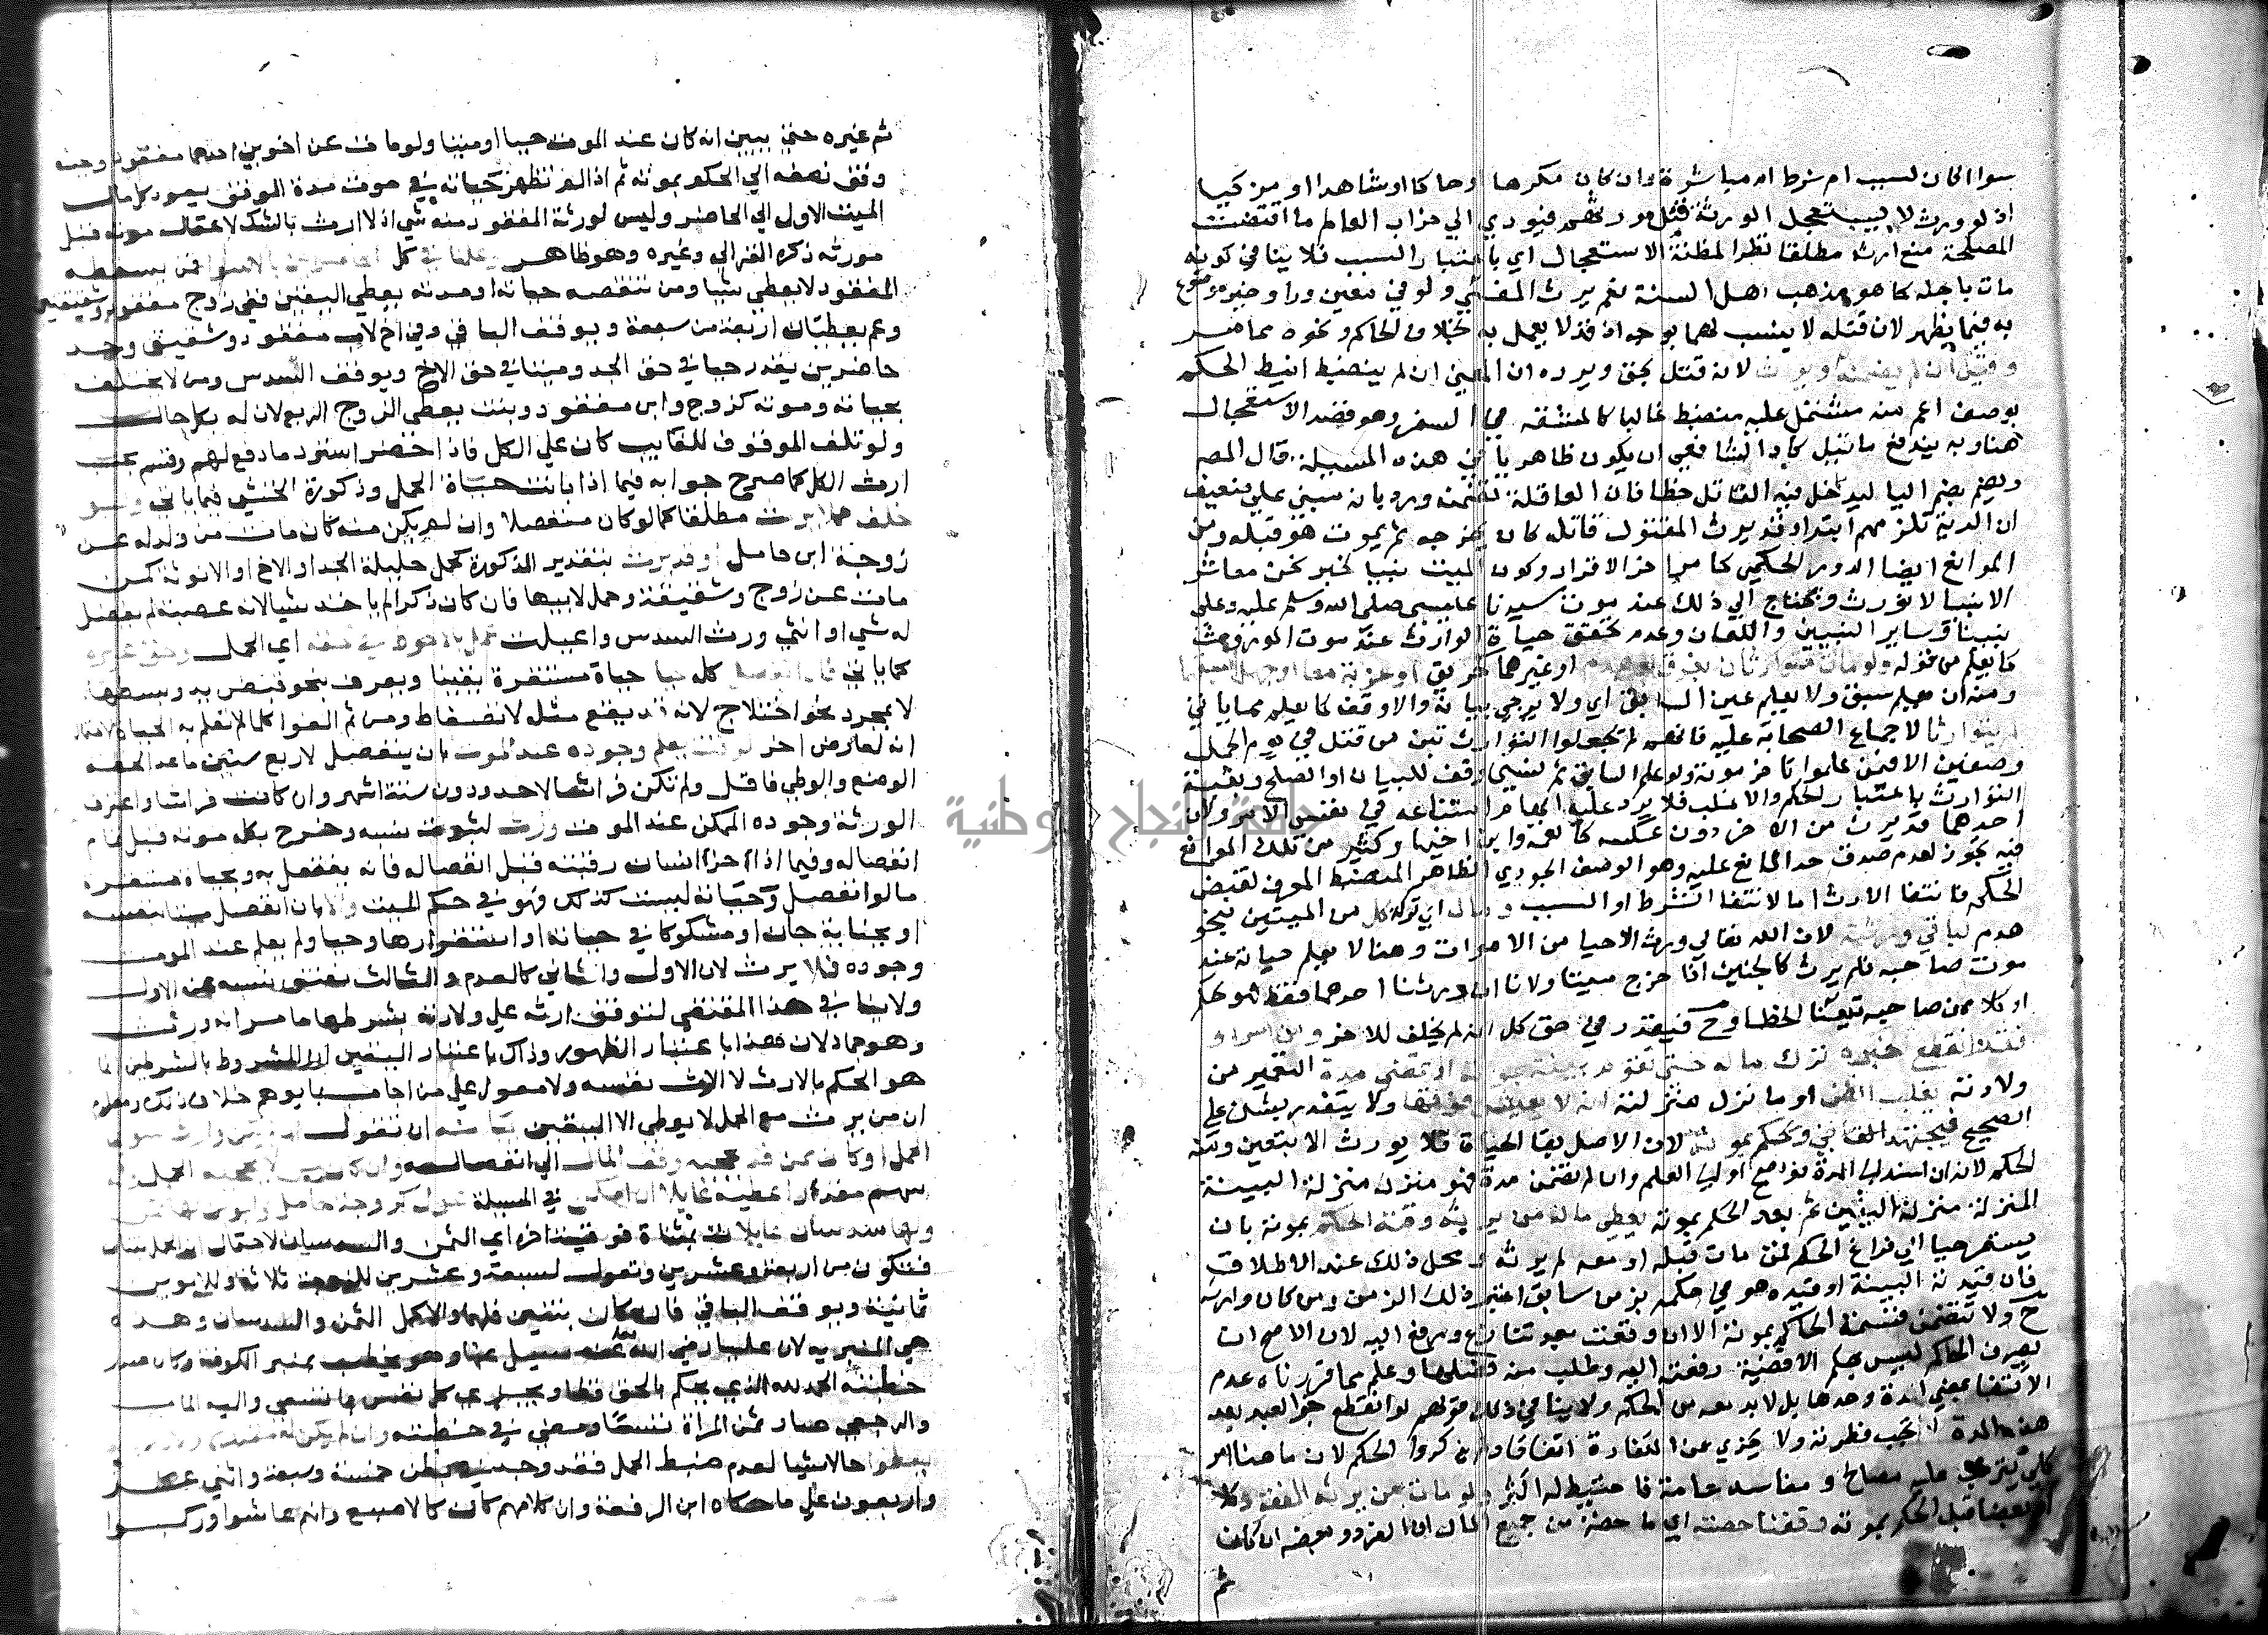 سوا اكان لسبب ام شرط ام مباشرة وان كان مكرها او حاكما او شاهدا او مزكيا
اذ لو ورث لاستعجل الورثة قتل مورثهم فيودي الي خراب العالم فاقتضت
المصلحة منع ارثه مطلقا نظرا لمظنة الاستعجال اي باعتبار السبب فلا ينافي كونه
مات باجله كما هو مذهب اهل السنة نعم يرث المفتي ولو في معين وراوي خبر موضوع
به فيما يظهر لان قتله لا ينسب لهما بوجه اذ قد لا يعمل به بخلاف الحاكم ونحوه مما مر
وقيل ان لم يضمن ورث لانه قتل بحق ويرده ان المعني ان لم ينضبط انيط الحكم
بوصف اعم منه مشتمل عليه منضبط غالبا كالمشقة في السفر وهو قصد الاستعجال
هنا وبه يندفع ما قيل كاد الشافعي ان يكون ظاهريا في هذه المسيلة قال المص
ويضم بضم اليا ليدخل فيه القاتل خطا فان العاقلة تضمنه ورد بانه مبني علي ضعيف
ان الدية تلزمهم ابتدا وقد يرث المقتول قاتله كان يجرحه ثم يموت هو قبله ومن
الموانع ايضا الدور الحكمي كما مر اخر الاقرار وكون الميت نبيا لخبر نحن معاشر
الانبيا لا نورث ونحتاج الي ذلك عند موت سيدنا عيسي صلي الله وسلم عليه وعلي
نبينا وساير النبيين واللعان وعدم تحقق حياة الوارث عند موت المورث
كما يعلم من قوله ولو مات متوارثان بغرق او هدم او غيرهما كحريق او غربة معا او جهل اسبقهما
ومنه ان يعلم سبق ولا يعلم عين السابق اي ولا يرجي بيانه والا وقف كما يعلم مما ياتي
لم يتوارثا لاجماع الصحابة عليه فانهم لم يجعلوا التوارث بين من قتل في يوم الجمل
وصفين الا فيمن علموا تاخر موته ولو علم السابق ثم نسي وقف للبيان او الصلح ونفيه
التوارث باعتبار الحكم والاغلب فلا يرد عليه ايهام امتناعه في نفس الامر وان
احدهما قد يرث من الاخر دون عكسه كالعمة وابن اخيها وكثير من تلك الموانع
فيه تجوز لعدم صدق حد المانع عليه وهو الوصف الوجودي الظاهر المنضبط المعرف لنقيض
الحكم فانتفا الارث اما لانتفا الشرط او السبب ومال اي تركة كل من الميتين بنحو
هدم لباقي ورثته لان الله تعالي ورث الاحيا من الاموات وهنا لا يعلم حياته عند
موت صاحبه فلم يرث كالجنين اذا خرج ميتا ولانا ان ورثنا احدهما فقط فهو تحكم
او كلا من صاحبه تيقنا الخطا وح فيقدر في حق كل انه لم يخلف للاخر ومن اسر او
فقد انقطع خبره ترك ماله حتي تقوم بينة بموته او تمضي مدة التقدير من
ولادته يغلب الظن او ما نزل منزلته انه لا يعيش فوقها ولا يتقدر بشي علي
الصحيح فيجتهد القاضي ويحكم بموته لان الاصل بقا الحياة فلا يورث الا بيقين ومثله
الحكم لانه ان استند الي المدة فواضح او الي العلم وان لم تمض مدة فهو منزل منزلة البينة
المنزلة منزلة اليقين ثم بعد الحكم بموته يعطي ماله من يرثه وقت الحكم بموته بان
يستمر حيا الي فراغ الحكم فمن مات قبله او معه لم يرثه ومحل ذلك عند الاطلاق
فان قيدته البينة او قيده هو في حكمه بزمن سابق اعتبر ذلك الزمن ومن كان وارثه
ح ولا تتضمن قسمة الحاكم بموته الا ان وقعت بعد تنازع ورفع اليه لان الاصح ان
تصرف الحاكم ليس بحكم الا قضية رفعت اليه وطلب منه فصلها وعلم مما قررناه عدم
الاكتفا بمضي المدة وحدها بل لا بد معه من الحكم ولا ينافي ذلك قولهم لو انقطع خبر العبد بعد
هذه المدة لم تجب فطرته ولا يجزي عن الكفارة اتفاقا ولم يذكروا الحكم لان ما هنا امر
كلي يترتب عليه مصالح ومفاسد عامة فاحتيط له اكثر ولو مات من يرثه المفقود كلا
او بعضا قبل الحكم بموته وقفنا حصته اي ما خصه من جميع المال ان انفرد وبعضه ان كان
ثم
ثم غيره حتي يتبين انه كان عند الموت حيا او ميتا ولو مات عن اخوين احدهما مفقود وجب
وقف نصفه الي الحكم بموته ثم اذا لم تظهر حياته في مدة الوقف يعود كل مال
الميت الاول الي الحاضر وليس لورثة المفقود منه شي اذ لا ارث بالشك لاحتمال موته قبل
مورثه ذكره الغزالي وغيره وهو ظاهر وعملنا في كل الحاضرين بالاسوا فمن يسقطه
المفقود لا يعطي شيا ومن تنقصه حياته او موته يعطي اليقين ففي زوج مفقود وشقيقتين
وعم يعطيان اربعة من سبعة ويوقف الباقي وفي اخ لاب مفقود وشقيق وجد
حاضرين يقدر حيا في حق الجد وميتا في حق الاخ ويوقف السدس ومن لا يختلف
بحياته وموته كزوج وابن مفقود وبنت يعطي الزوج الربع لانه له بكل حال
ولو تلف الموقوف للغايب كان علي الكل فاذا حضر استرد ما دفع لهم وقسم بحسب
ارث الكل كما صرح جوابه فيما اذا بانت حياة الحمل وذكورة الخنثي فيما ياتي ولو
خلف حملا يرث مطلقا كما لو كان منفصلا وان لم يكن منه كان مات من ولد له عن
زوجة ابن حامل او قد يرث بتقدير الذكورة كحمل حليلة الجد او الاخ او الانوثة كمن
مات عن زوج وشقيقة وحمل لابيها فان كان ذكرا لم ياخذ شيا لانه عصبة لم يفضل
له شي او انثي ورث السدس واعيلت عمل بالاحوط في حقه اي الحمل وحق غيره
كما ياتي فان انفصل كله حيا حياة مستقرة يقينا ويعرف بنحو قبض يد وبسطها
لا بمجرد نحو اختلاج لانه قد يقع مثله لانضغاط ومن ثم الغوا كل ما لم تعلم به الحياة لاحتمال
انه لعارض اخر لوقت يعلم وجوده عند الموت بان ينفصل لاربع سنين
الوضع والوطي فاقل ولم تكن فراشا لاحد ودون ستة اشهر وان كانت فراشا واعترف
الورثة وجوده الممكن عند الموت ورث لثبوت نسبه وخرج بكله موته قبل تمام
انفصاله وفيما اذا حز انسان رقبته قبل انفصاله فانه يفعل به وبحياة مستقرة
ما لو انفصل وحياته ليست كذلك فهو في حكم الميت والا بان انفصل ميتا بنفسه
او بجناية جان او مشكوكا في حياته او استقرارها وحيا ولم يعلم عند الموت
وجوده فلا يرث لان الاول والثاني كالعدم والثالث ينتفي نسبه عن الاول
ولا ينافي هذا المقتضي لتوقف ارثه علي ولادته بشرطها ما مر انه ورث
وهو جماد لان هذا باعتبار الظهور وذاك باعتبار اليقين او المشروط بالشرطين انما
هو الحكم بالارث لا الارث نفسه ولا معول علي من اجاب بما يوهم خلاف ذلك ومعلوم
ان من يرث مع الحمل لا يعطي الا اليقين بيانه ان نقول ان لم يكن وارث سوي
الحمل او كان من قد يحجبه وقف المال الي انفصاله وان كان من لا يحجبه الحمل وله
سهم مقدر اعطيه عايلا ان امكن في المسيلة عول كزوجة حامل وابوين لها ثمن
ولهما سدسان عايلات بمثناة فوقية اخره اي الثمن والسدسان لاحتمال ان الحمل بنتان
فتكون من اربعة وعشرين وتعول لسبعة وعشرين للزوجة ثلاثة وللابوين
ثمانية ويوقف الباقي فان كان بنتين فلهما والا كمل الثمن والسدسان وهذه
هي المنبرية لان عليا رضي الله عنه سيل عنها وهو يخطب بمنبر الكوفة وكان صدر
خطبته الحمد لله الذي يحكم بالحق قطعا ويجزي كل نفس بما تسعي واليه الماب
والرجعي صار ثمن المراة تسعا ومضي في خطبته وان لم يكن له مقدر
يعطوا حالا شيا لعدم ضبط الحمل فقد وجد في بطن خمسة وسبعة واثني عشر
واربعون علي ما حكاه ابن الرفعة وان كلا منهم كان كالاصبع وانهم عاشوا وركبوا